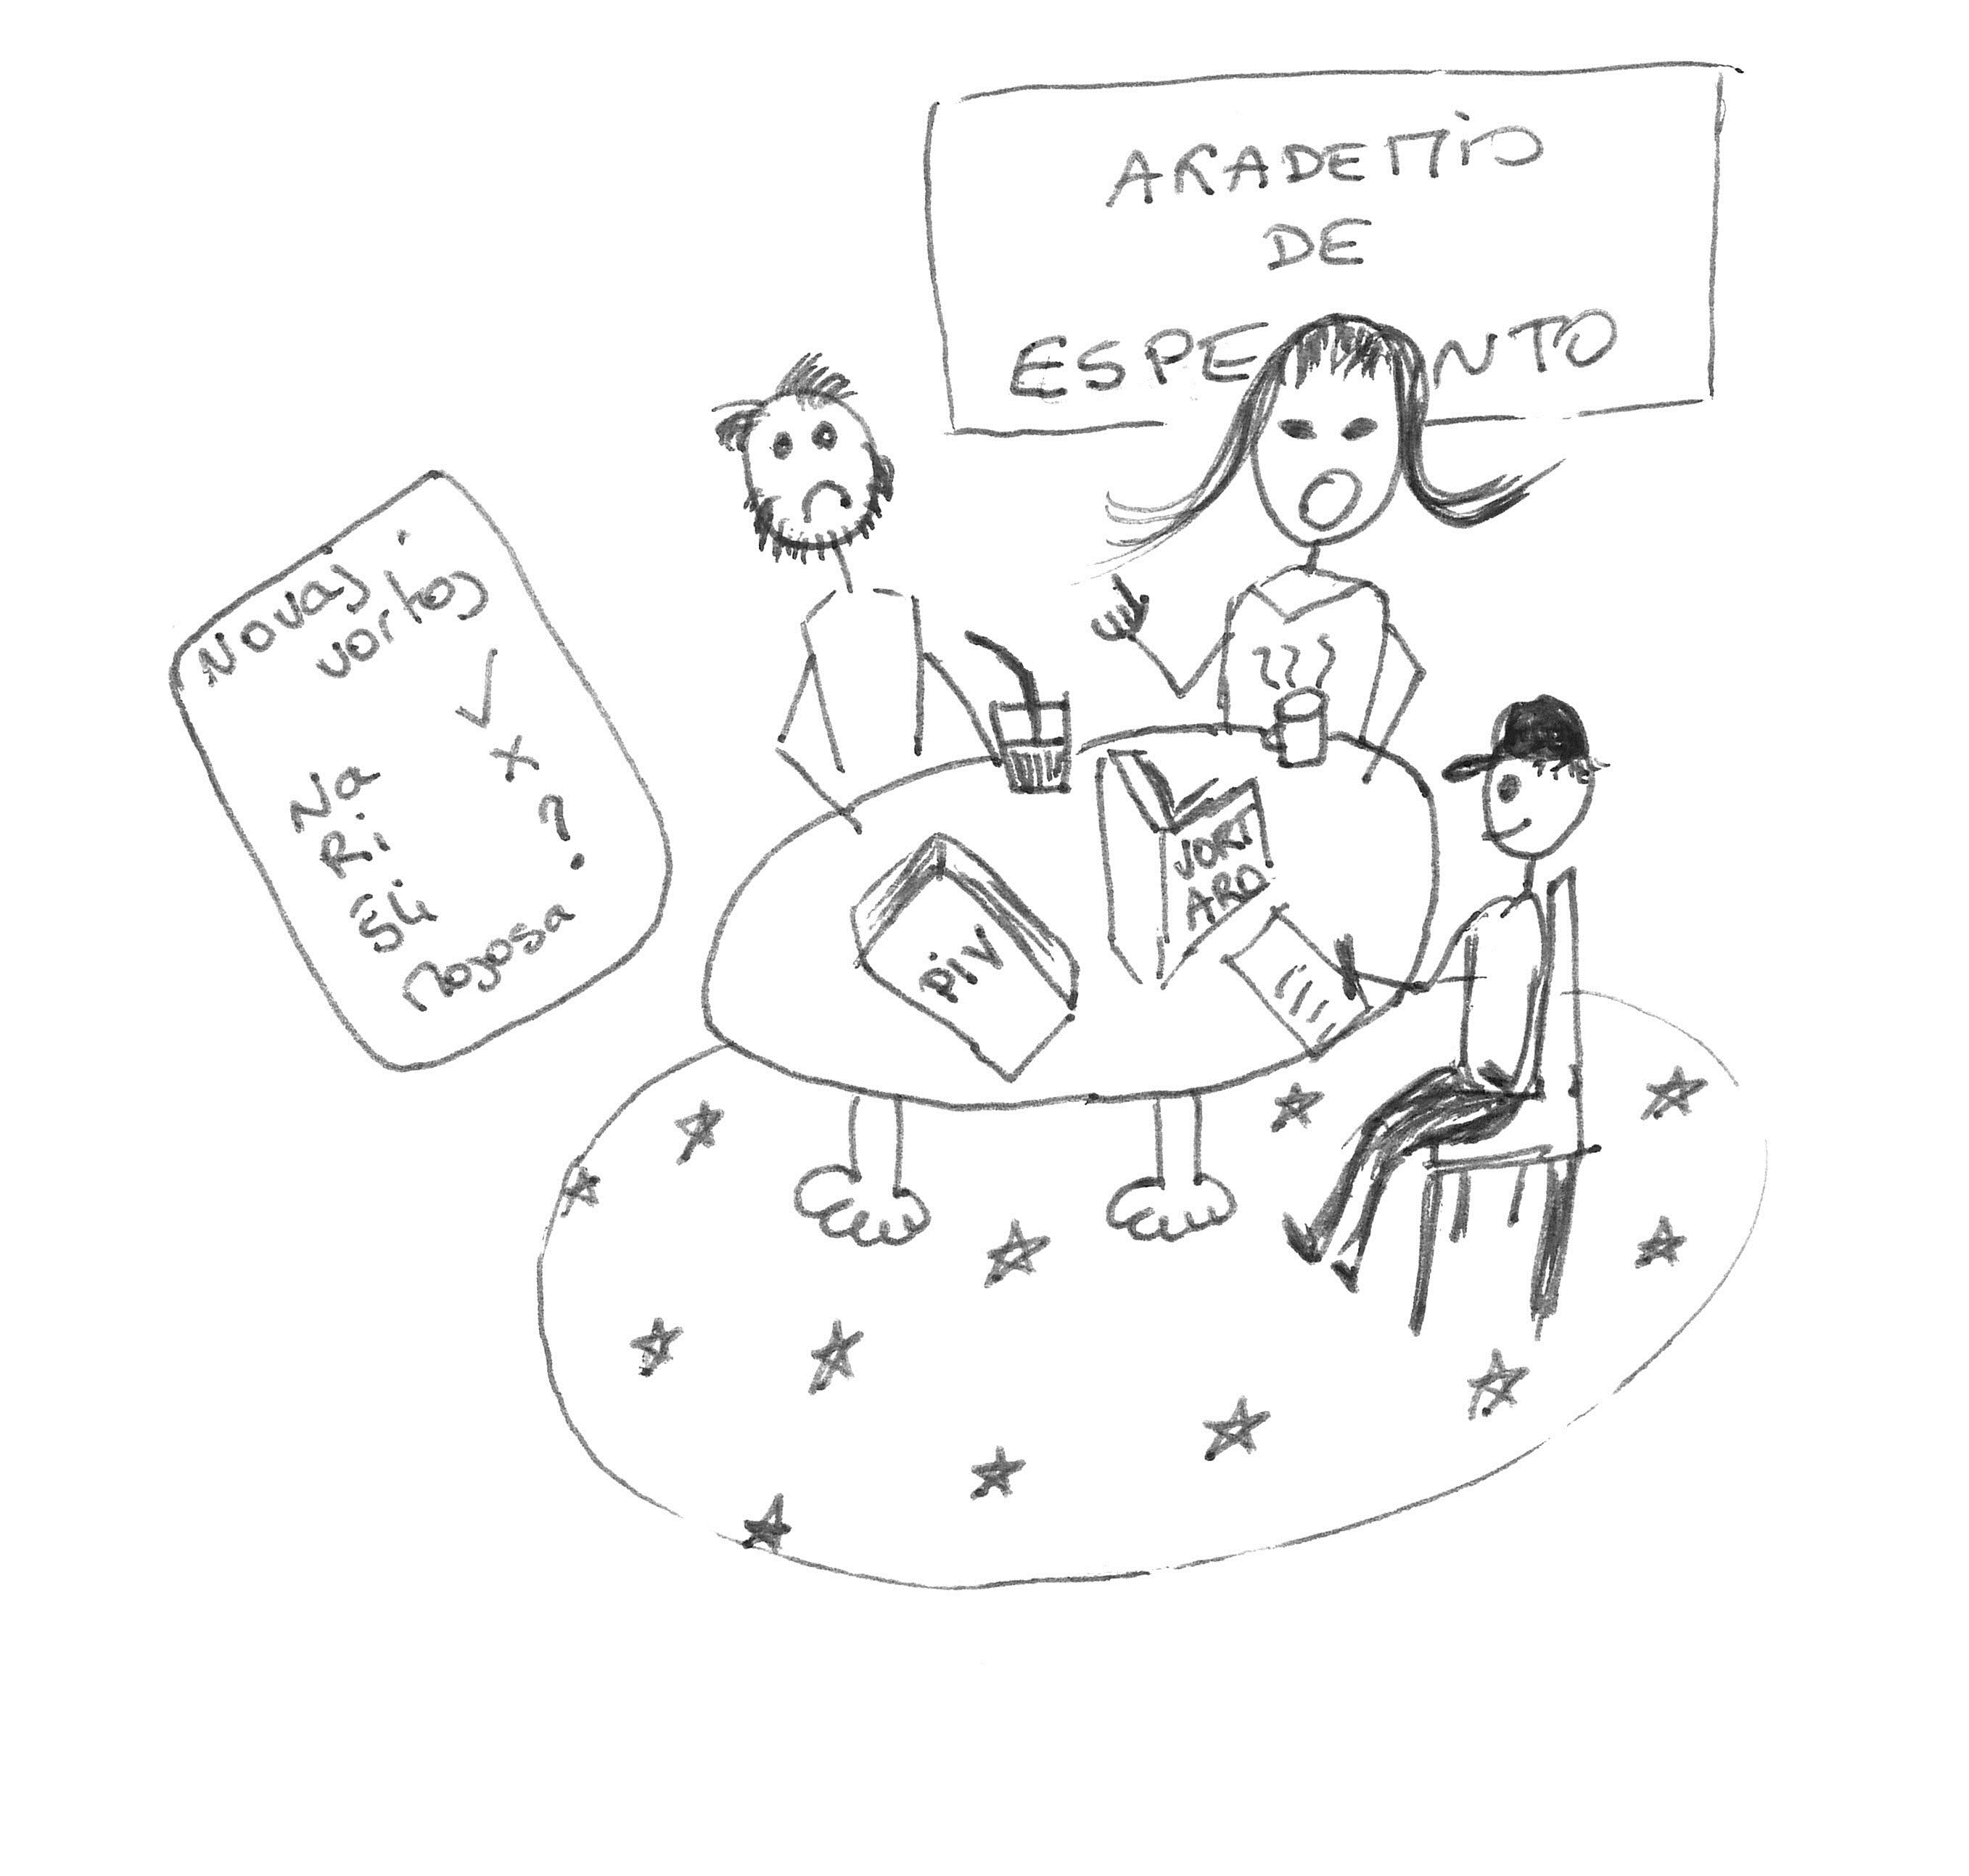 AKADEMIO
DE
ESPE NTO
Novaj
vortoj
Na ✓
Ri x
Ŝli ?
mojosa
PIV
VORT
ARO